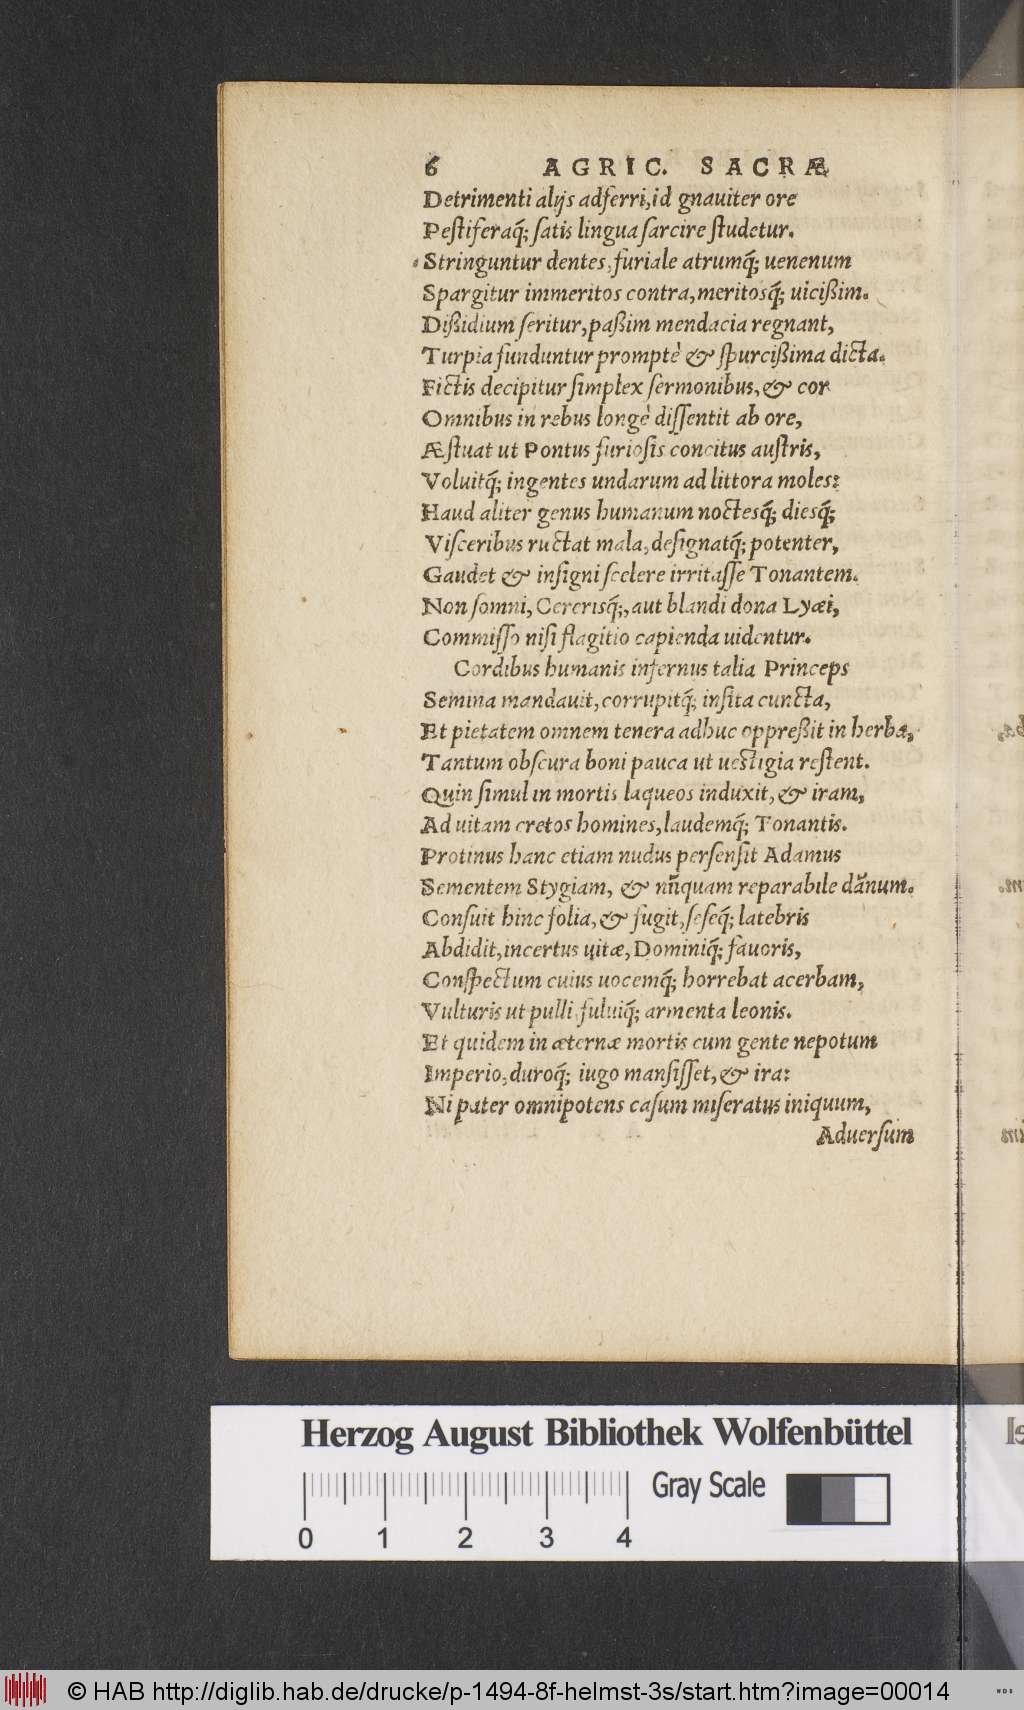 6 AGRIC. SACRÆ
Detrimenti alijs adferri, id gnauiter ore
Pestiferaq́; satis lingua sarcire studetur.
Stringuntur dentes, furiale atrumq́; uenenum
Spargitur immeritos contra, meritosq́; uicißim.
Dißidium seritur, paßim mendacia regnant,
Turpia funduntur promptè & spurcißima dicta.
Fictis decipitur simplex sermonibus, & cor
Omnibus in rebus longè dissentit ab ore,
Æstuat ut Pontus furiosis concitus austris,
Voluitq́; ingentes undarum ad littora moles:
Haud aliter genus humanum noctesq́; diesq́;
Visceribus ructat mala, designatq́; potenter,
Gaudet & insigni scelere irritasse Tonantem.
Non somni, Cererisq́;, aut blandi dona Lyæi,
Commisso nisi flagitio capienda uidentur.
Cordibus humanis infernus talia Princeps
Semina mandauit, corrupitq́; insita cuncta,
Et pietatem omnem tenera adhuc oppreßit in herba,
Tantum obscura boni pauca ut uestigia restent.
Quin simul in mortis laqueos induxit, & iram,
Ad uitam cretos homines, laudemq́; Tonantis.
Protinus hanc etiam nudus persensit Adamus
Sementem Stygiam, & nũquam reparabile dãnum.
Consuit hinc folia, & fugit, seseq́; latebris
Abdidit, incertus uitæ, Dominiq́; fauoris,
Conspectum cuius uocemq́; horrebat acerbam,
Vulturis ut pulli, fuluiq́; armenta leonis.
Et quidem in æternæ mortis cum gente nepotum
Imperio, duroq́; iugo mansisset, & ira:
Ni pater omnipotens casum miseratus iniquum,
Aduersum
Herzog August Bibliothek Wolfenbüttel
Gray Scale
0 1 2 3 4
© HAB http://diglib.hab.de/drucke/p-1494-8f-helmst-3s/start.htm?image=00014